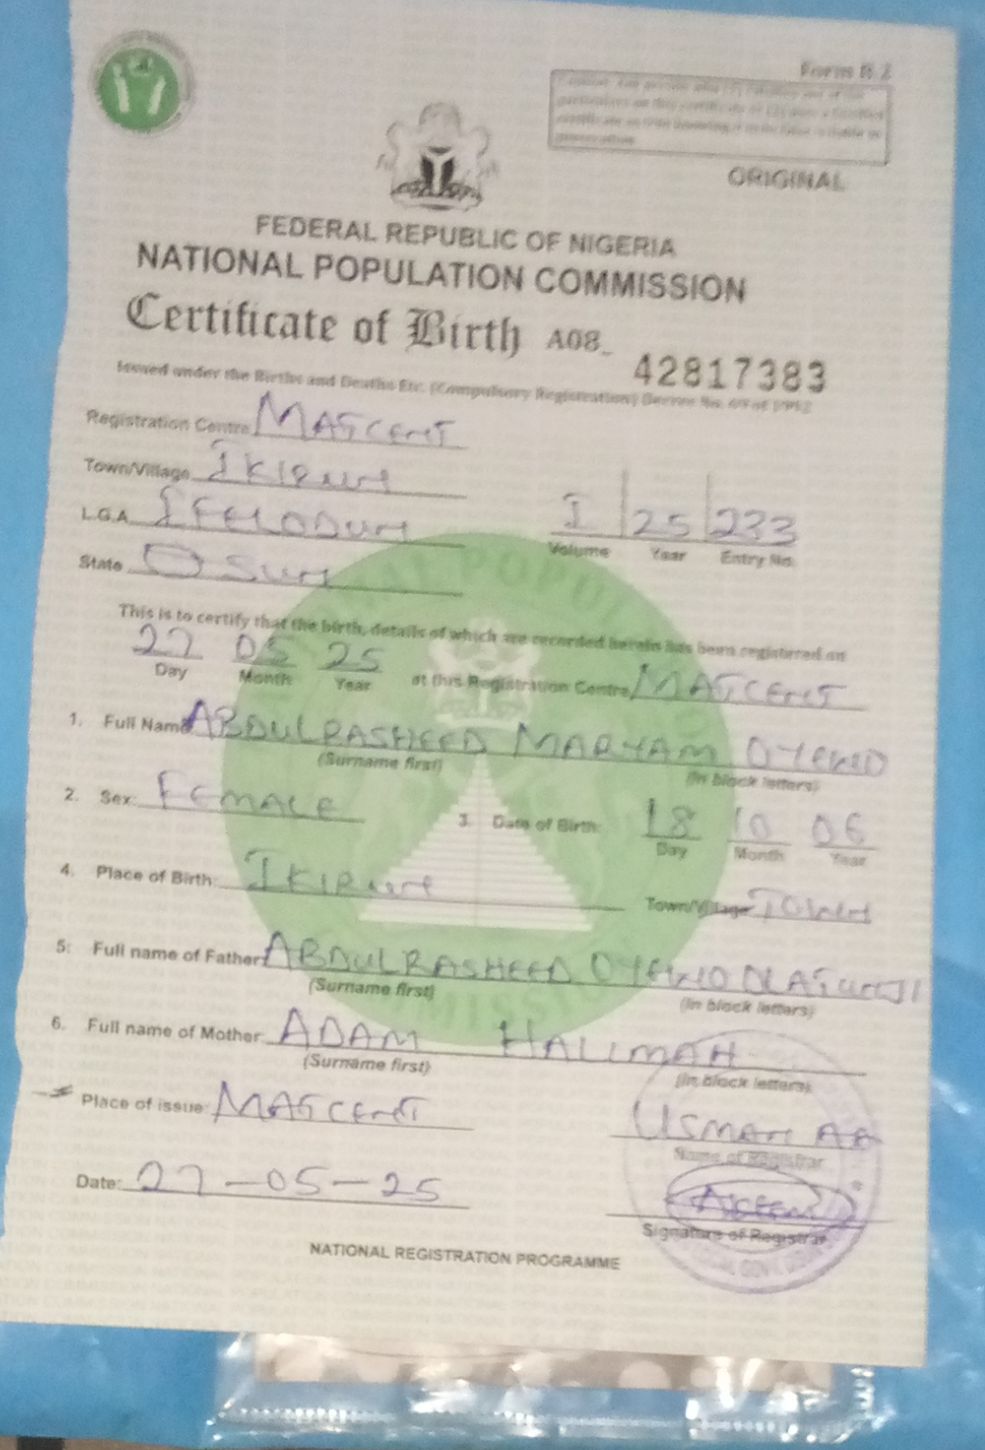 Form B.2
ORIGINAL
FEDERAL REPUBLIC OF NIGERIA
NATIONAL POPULATION COMMISSION
Certificate of Birth A08_ 42817383
Issued under the Births and Deaths Etc. (Compulsory Registration) Decree No. 69 of 1992
Registration Centre
Town/Village IKIRUN
L.G.A IFELODUN
State OSUN
I 25 233
Volume Year Entry No.
This is to certify that the birth, details of which are recorded herein has been registered on
27 05 25 at this Registration Centre
Day Month Year
1. Full Name ABDULRASHEED MARYAM OYEWO
(Surname first) (In block letters)
2. Sex: FEMALE 3. Date of Birth: 18 10 06
Day Month Year
4. Place of Birth: IKIRUN Town/Village TOWN
5: Full name of Father: ABDULRASHEED OYEWO OLATUNJI
(Surname first) (In block letters)
6. Full name of Mother: ADAM HALIMAH
(Surname first) (In block letters)
Place of issue: USMAN AA
Name of Registrar
Date: 27-05-25
Signature of Registrar
NATIONAL REGISTRATION PROGRAMME